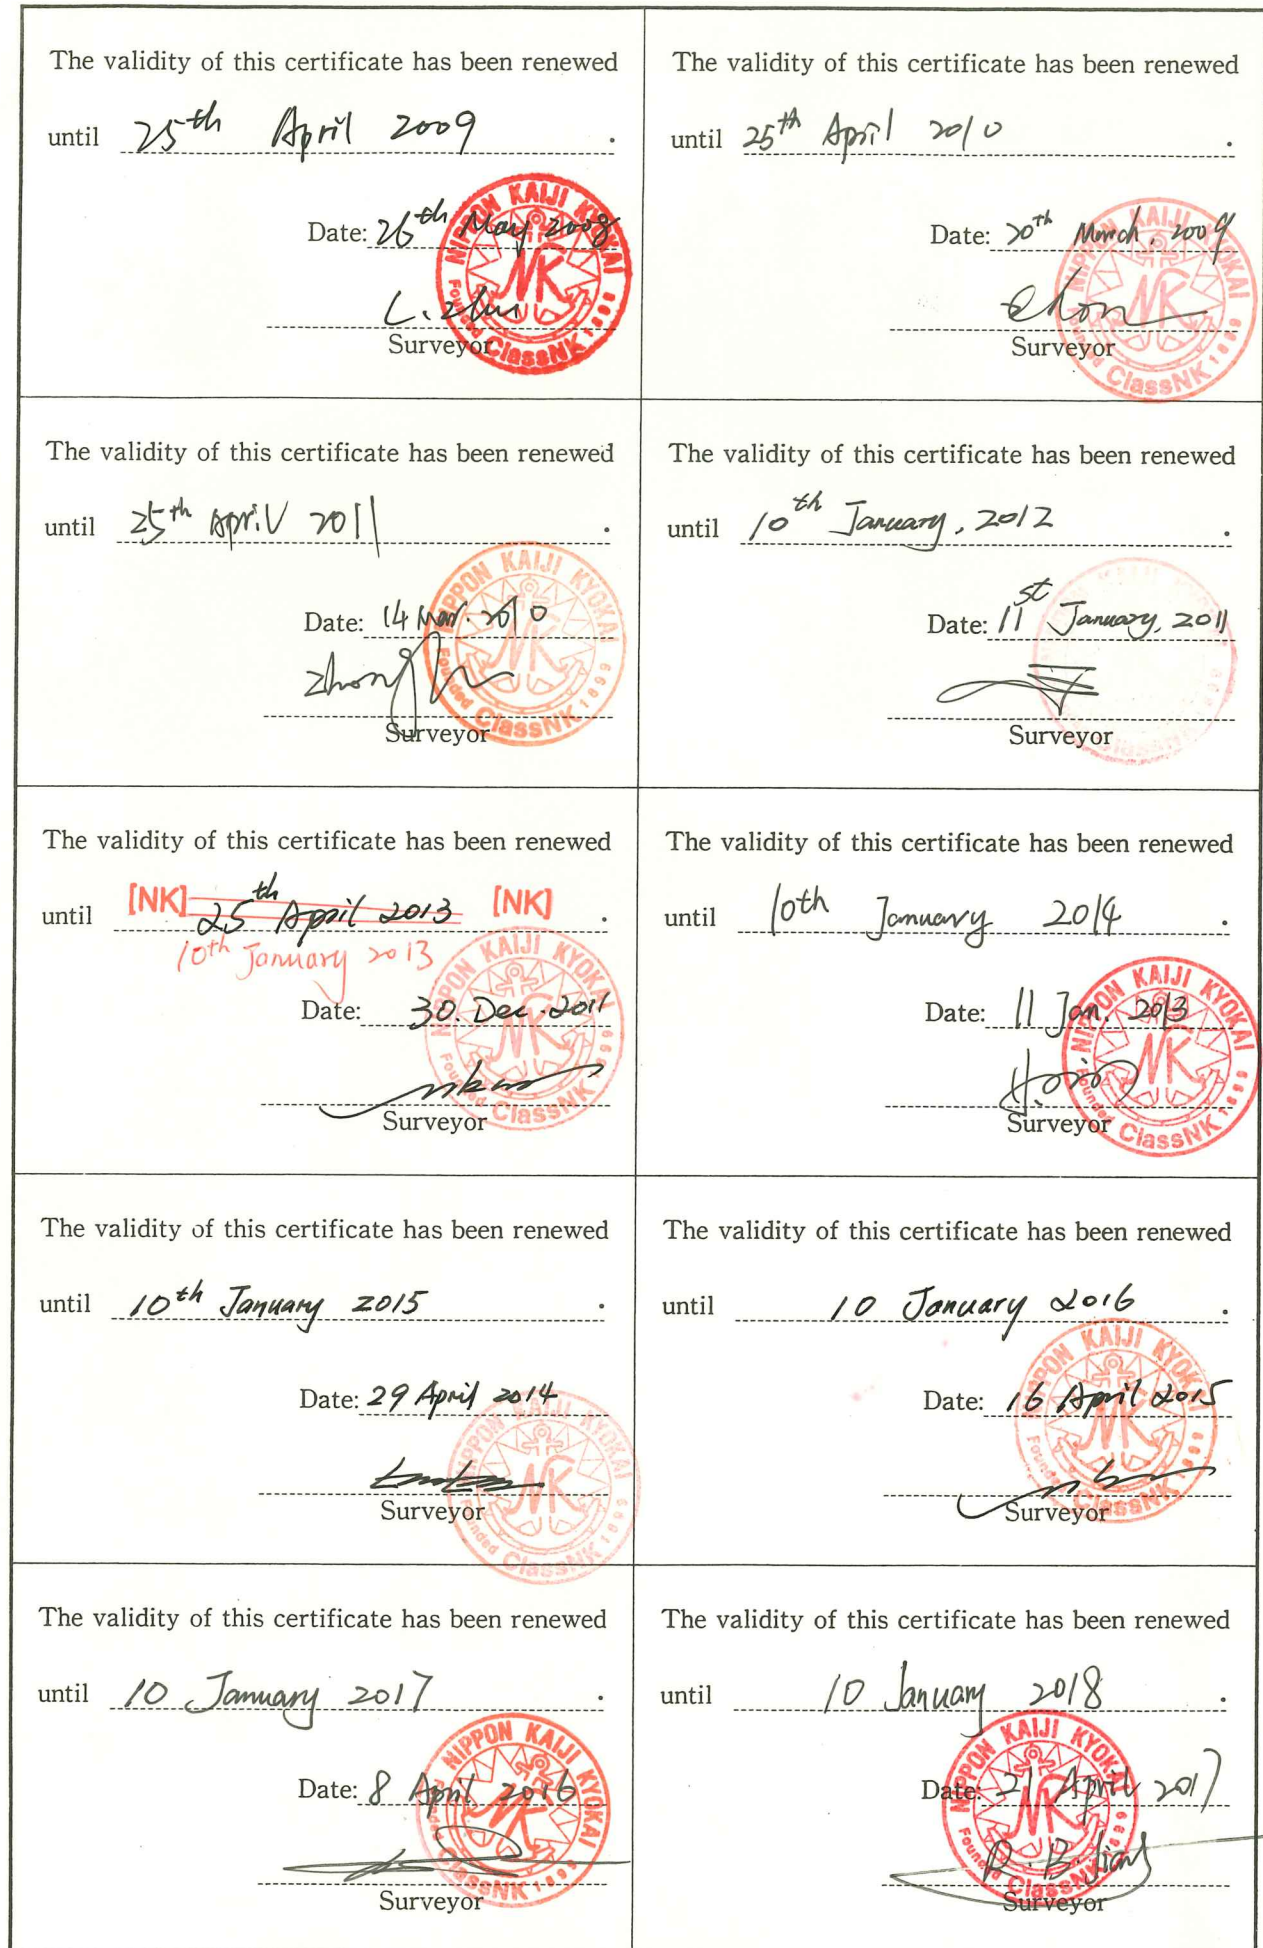 The validity of this certificate has been renewed
until 25th April 2009 .
Date: 26th May 2008
L. Zhu
Surveyor
NIPPON KAIJI KYOKAI
NK
Founded ClassNK 1899
The validity of this certificate has been renewed
until 25th April 2010 .
Date: 20th March. 2009
Surveyor
NIPPON KAIJI KYOKAI
NK
Founded ClassNK 1899
The validity of this certificate has been renewed
until 25th April 2011 .
Date: 14 Mar. 2010
Surveyor
NIPPON KAIJI KYOKAI
NK
Founded ClassNK 1899
The validity of this certificate has been renewed
until 10th January, 2012 .
Date: 11st January, 2011
Surveyor
The validity of this certificate has been renewed
[NK] [NK]
until 25th April 2013 .
10th January 2013
Date: 30. Dec. 2011
Surveyor
NIPPON KAIJI KYOKAI
NK
Founded ClassNK 1899
The validity of this certificate has been renewed
until 10th January 2014 .
Date: 11 Jan. 2013
Surveyor
NIPPON KAIJI KYOKAI
NK
Founded ClassNK 1899
The validity of this certificate has been renewed
until 10th January 2015 .
Date: 29 April 2014
Surveyor
NIPPON KAIJI KYOKAI
NK
Founded ClassNK 1899
The validity of this certificate has been renewed
until 10 January 2016 .
Date: 16 April 2015
Surveyor
NIPPON KAIJI KYOKAI
NK
Founded ClassNK 1899
The validity of this certificate has been renewed
until 10 January 2017 .
Date: 8 April 2016
Surveyor
NIPPON KAIJI KYOKAI
NK
Founded ClassNK 1899
The validity of this certificate has been renewed
until 10 January 2018 .
Date: 21 April 2017
Surveyor
NIPPON KAIJI KYOKAI
NK
Founded ClassNK 1899